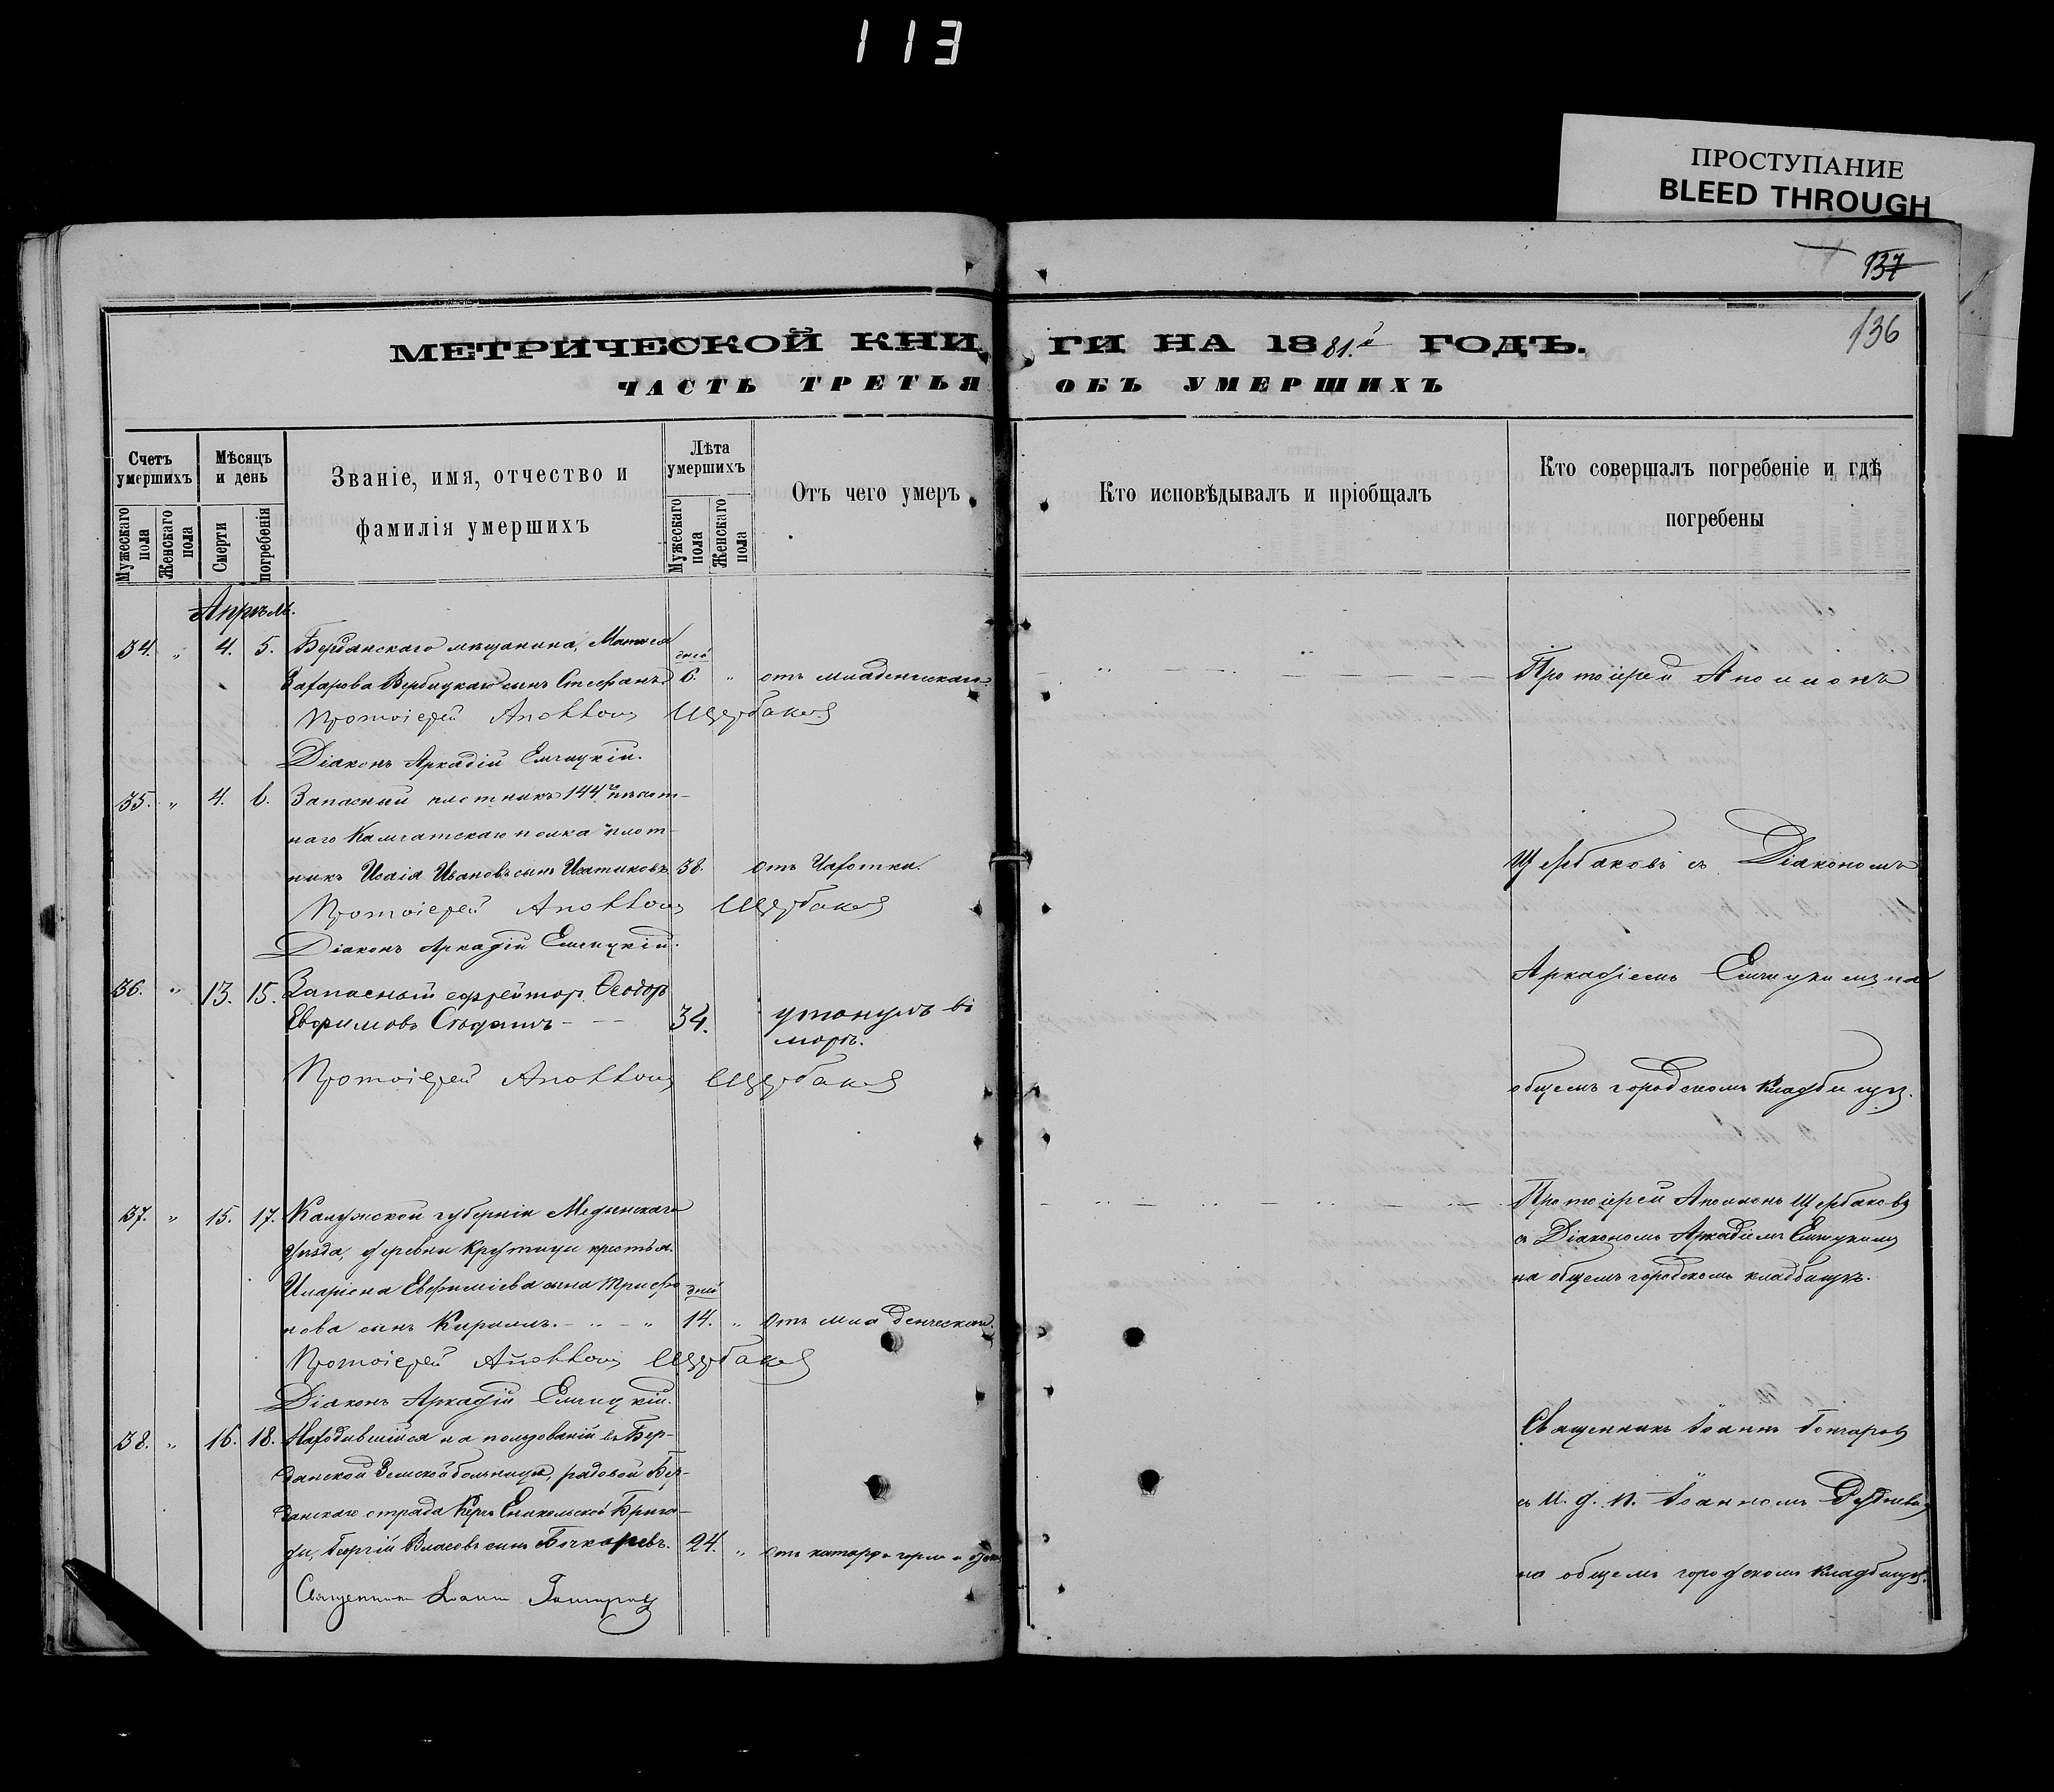 113
ПРОСТУПАНИЕ
BLEED THROUGH
137
136
МЕТРИЧЕСКОЙ КНИ ГИ НА 1881.й ГОДЪ.
ЧАСТЬ ТРЕТЬЯ ОБЪ УМЕРШИХЪ
Счетъ умершихъ
Мужескаго пола
Женскаго пола
Мѣсяцъ и день
Смерти
погребенія
Званіе, имя, отчество и фамилія умершихъ
Лѣта умершихъ
Мужескаго пола
Женскаго пола
Отъ чего умеръ
Кто исповѣдывалъ и пріобщалъ
Кто совершалъ погребеніе и гдѣ погребены
Апрѣль.
34. " 4. 5. Бердянскаго мѣщанина, Матвея
Захарова Вербицкаго сынъ Стефанъ дней 6. " отъ младенческаго.
Протоіерей Аполлонъ Щербаковъ
Діаконъ Аркадій Емчицкій.
35. " 4. 6. Запасный 144го пѣхот-
наго Камчатскаго полка плот-
никъ Исаія Ивановъ сынъ 38. отъ Чахотки.
Протоіерей Аполлонъ Щербаковъ
Діаконъ Аркадій Емчицкій.
36. " 13. 15. Запасный ефрейтор Ѳеодоръ
Евфимовъ 34. утонулъ въ
морѣ.
Протоіерей Аполлонъ Щербаковъ
Протоіерей Аполлонъ
Щербаковъ съ Діакономъ
Аркадіемъ Емчицкимъ на
общемъ городскомъ кладбищѣ.
37. " 15. 17. Калужской губерніи Медынскаго
уѣзда, деревни Крутицы крестья.
Иларіона Евфиміева сына Трифо
нова сынъ Кириллъ. дней 14. " Отъ младенческаго.
Протоіерей Аполлонъ Щербаковъ
Діаконъ Аркадій Емчицкій.
Протоіерей Аполлонъ Щербаковъ
съ Діакономъ Аркадіемъ Емчицкимъ
на общемъ городскомъ кладбищѣ.
38. " 16. 18. Находившійся на пользованіи въ Бер-
дянской Земской больницѣ, рядовой Бер-
дянскаго отряда Керчь Еникольской Брига-
ды, Георгій Власовъ сынъ Бочкаревъ. 24. " Отъ катарра горла и
Священникъ Іоаннъ Гончаровъ
Священникъ Іоаннъ Гончаровъ
съ И. д. п. Іоанномъ
на общемъ городскомъ кладбищѣ.